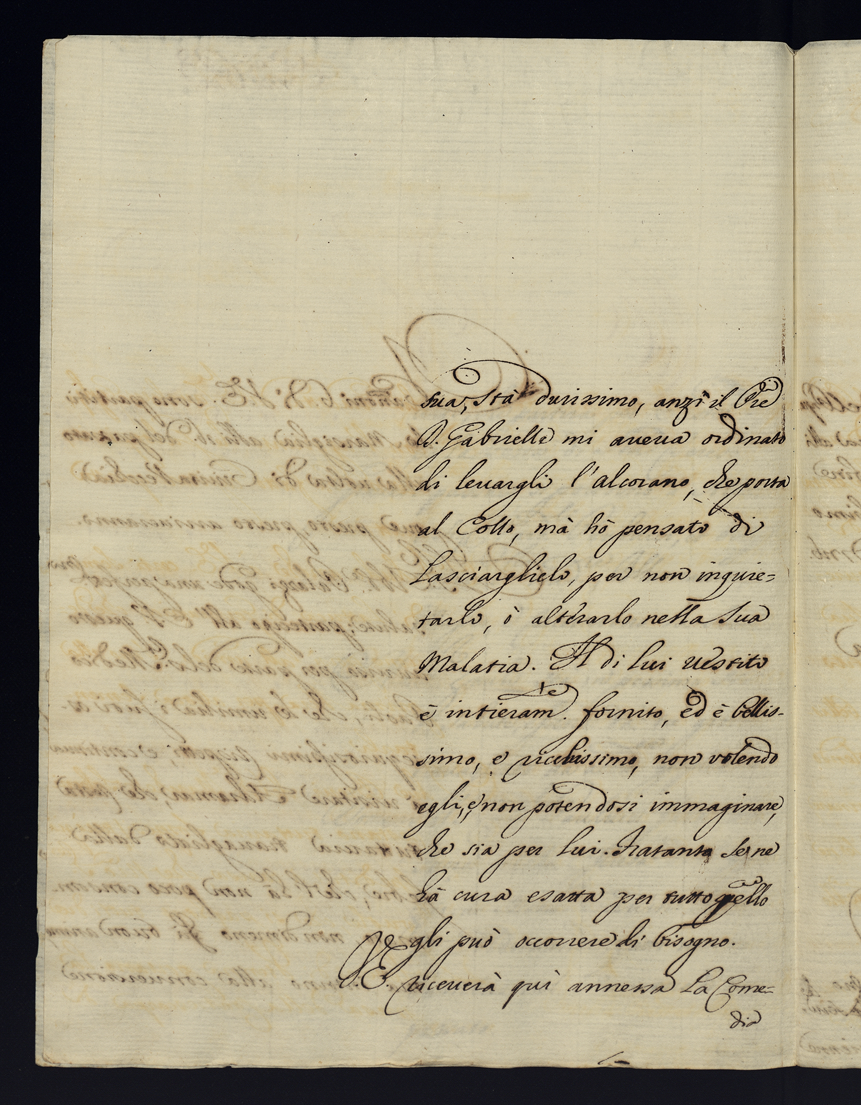 sua, stà durissimo, anzi il Pre
D. Gabrielle mi aveva ordinato
di levargli l'alcorano, che porta
al Collo, mà hò pensato di
Lasciarglielo, per non inquie=
tarlo, ò alterarlo nella sua
Malatia. Il di lui vestito
è intieramte. fornito, ed è bellis-
simo, e ricchissimo, non volendo
egli, e non potendosi immaginare,
che sia per lui. Fratanto se ne
hà cura esatta per tutto quello
gli può occorrere di bisogno.
VE riceverà quì annessa La Come=
dia